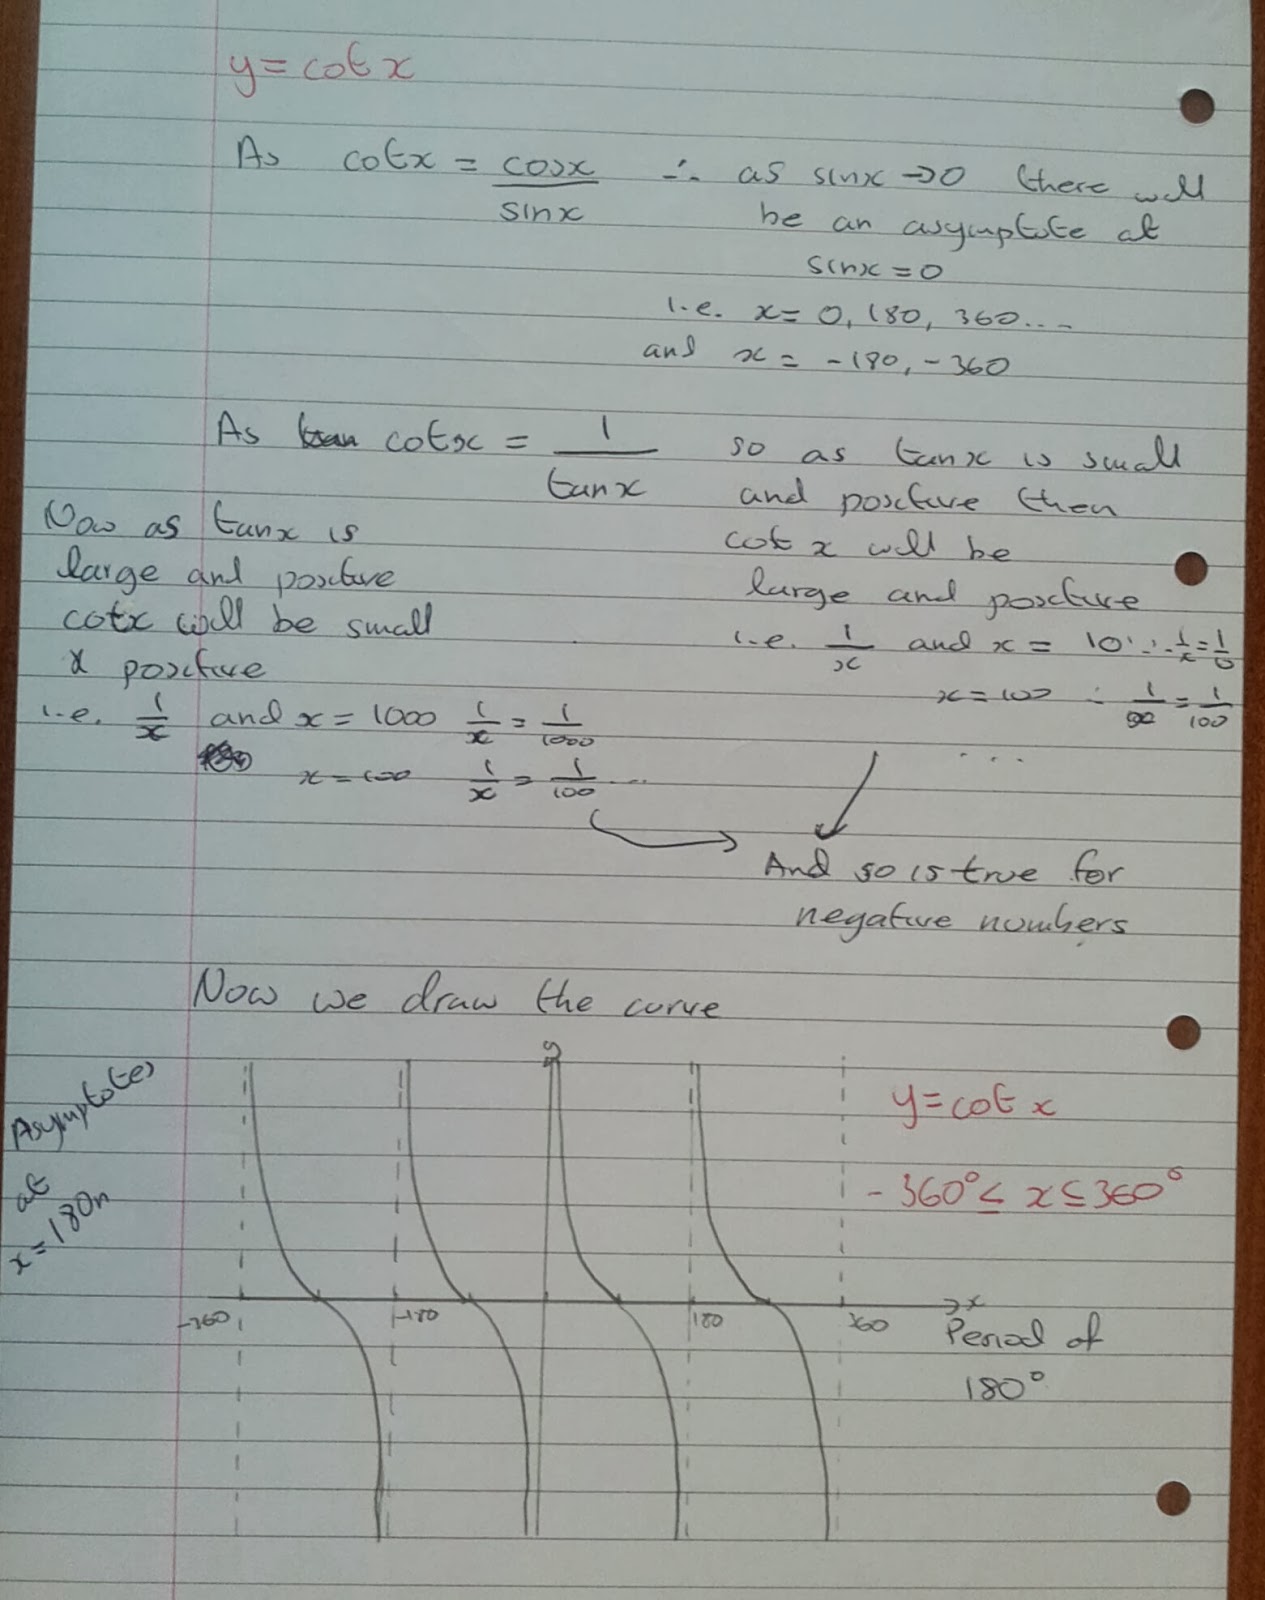 y = cot x
As cotx = cosx/sinx ∴ as sinx → 0 there will
be an asymptote at
sinx = 0
i.e. x = 0, 180, 360...
and x = -180, -360
As cotx = 1/tanx so as tanx is small
and positive then
cot x will be
large and positive
i.e. 1/x and x = 10 ∴ 1/x = 1/10
x = 100 ∴ 1/x = 1/100
...
Now as tanx is
large and positive
cotx will be small
& positive
i.e. 1/x and x = 1000 1/x = 1/1000
x = 100 1/x = 1/100 ...
And so is true for
negative numbers
Now we draw the curve
Asymptotes
at
x = 180n
y
y = cot x
-360° ≤ x ≤ 360°
-360 -180 180 360 x
Period of
180°